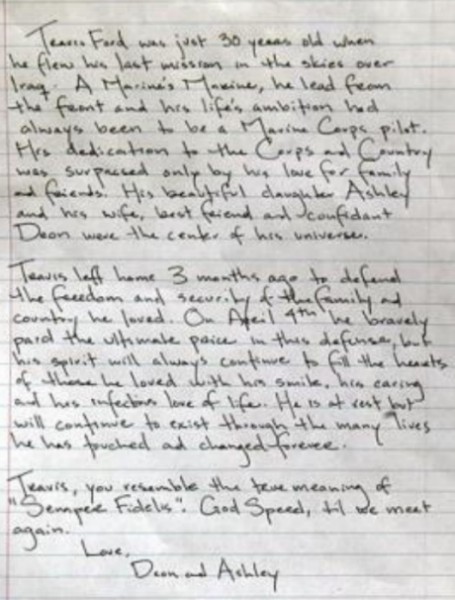 Travis Ford was just 30 years old when
he flew his last mission in the skies over
Iraq. A Marine's Marine, he lead from
the front and his life's ambition had
always been to be a Marine Corps pilot.
His dedication to the Corps and Country
was surpassed only by his love for family
and friends. His beautiful daughter Ashley
and his wife, best friend and confidant
Deon were the center of his universe.
Travis left home 3 months ago to defend
the freedom and security of the family and
country he loved. On April 4th he bravely
paid the ultimate price in this defense, but
his spirit will always continue to fill the hearts
of those he loved with his smile, his caring
and his infectious love of life. He is at rest but
will continue to exist through the many lives
he has touched ad changed forever.
Travis, you resemble the true meaning of
"Semper Fidelis". God Speed, til we meet
again.
Love,
Deon and Ashley